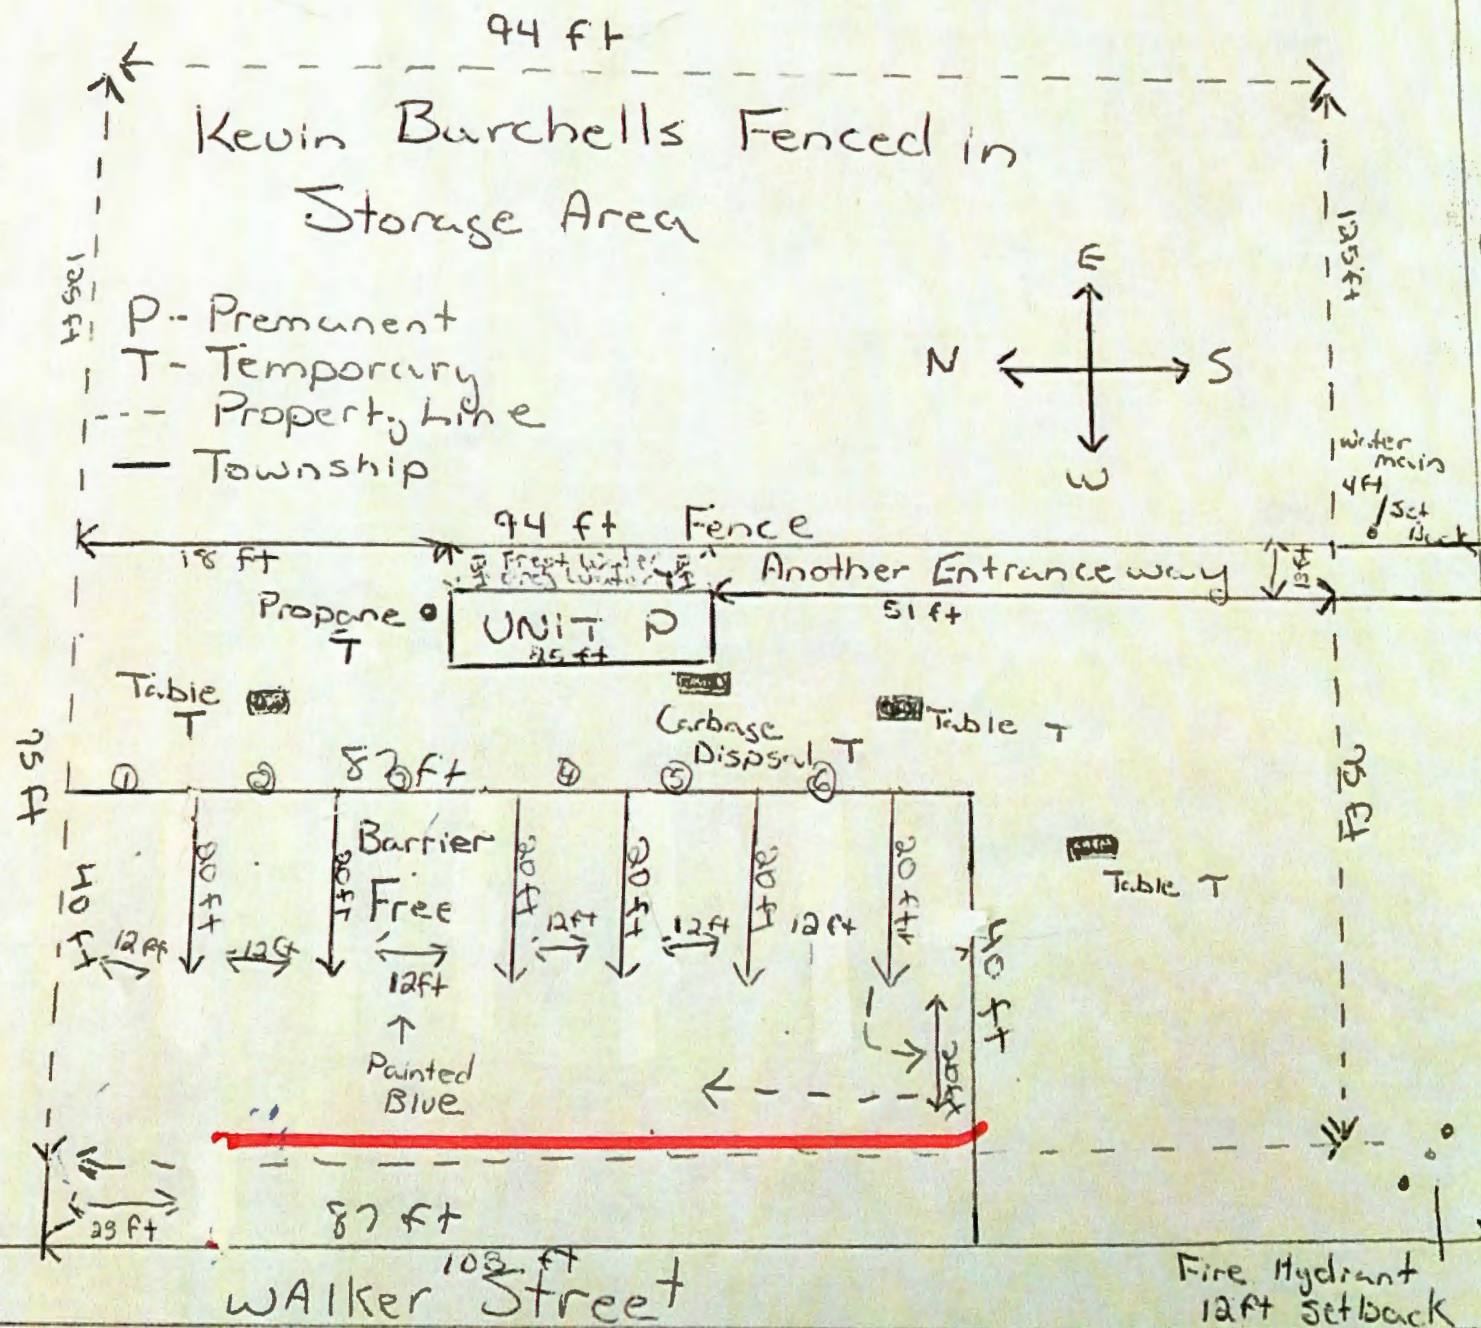 94 ft
Kevin Burchells Fenced in
Storage Area
125 ft
125 ft
P-- Premanent
T- Temporary
Property Line
Township
E
N S
W
water
main
4 ft
Set
Back
94 ft Fence
18 ft
Another Entrance way
51 ft
Propane
T
UNIT P
25 ft
Table
T
Garbage
Dispsal T
Table T
75 ft
87 ft
1 2 3 4 5 6
Barrier
Free
20 ft 20 ft 20 ft 20 ft 20 ft 20 ft
Table T
40 ft
12 ft 12ft 12ft 12ft 12ft
12ft
40 ft
Painted
Blue
20ft
87 ft
103 ft
WAlker Street
Fire Hydrant
12ft setback